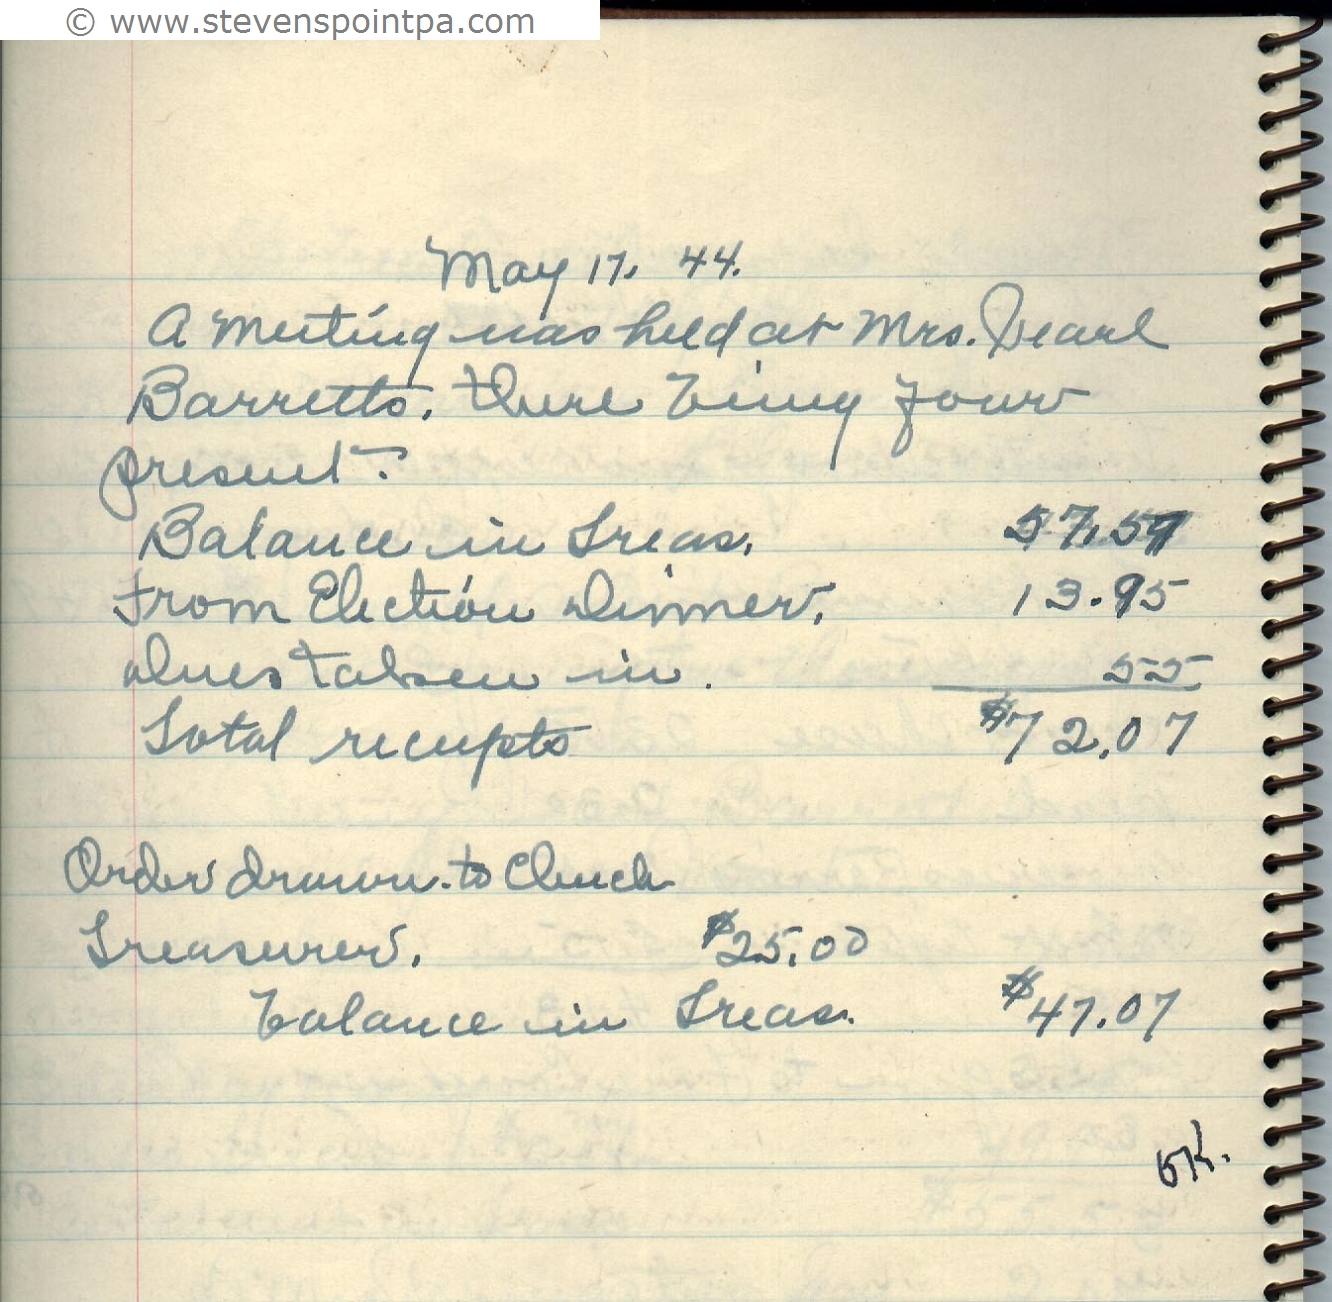 © www.stevenspointpa.com
May 17. 44.
A meeting was held at Mrs. Pearl
Barretts. there being four
present.
Balance in Treas. 57.57
From Election Dinner. 13.95
Dues taken in. 55
Total receipts $72.07
Order drawn to Church
Treasurer. $25.00
balance in Treas. $47.07
OK.